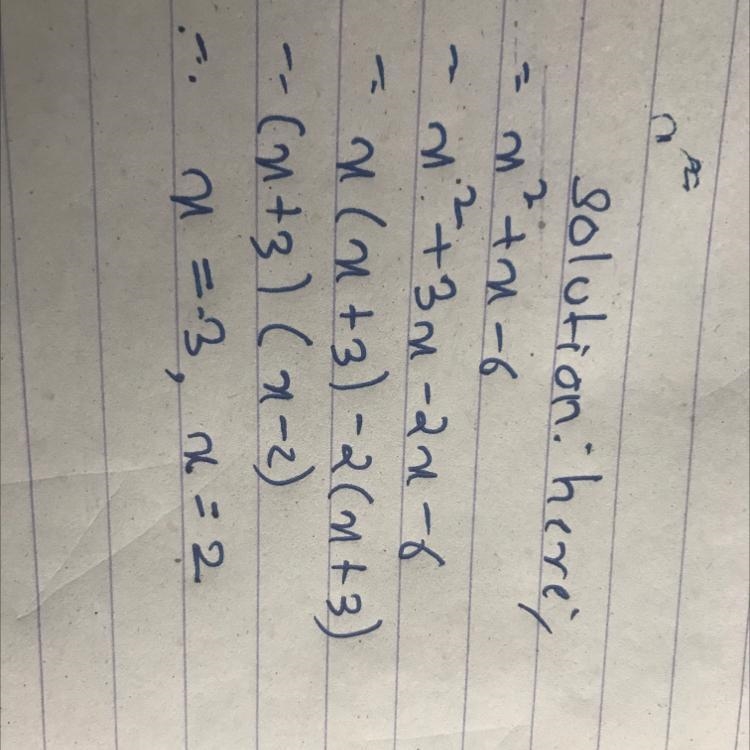 Solution: here;
= x² + x - 6
= x² + 3x - 2x - 6
= x(x + 3) - 2(x + 3)
= (x + 3) (x - 2)
∴ x = -3, x = 2